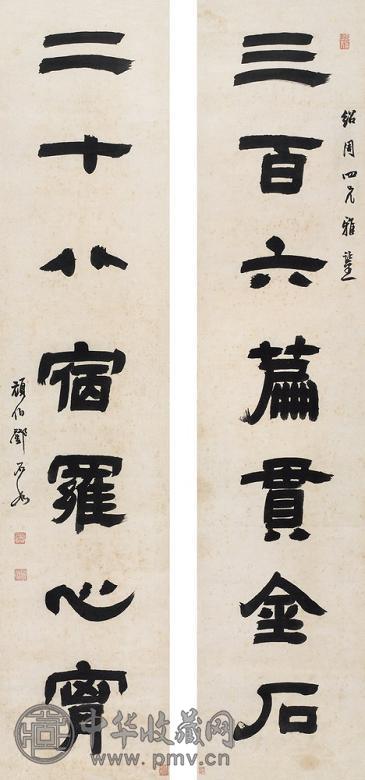 紹周四兄雅鑒
三百六篇貫金石
二十八宿羅心胷
頑伯鄧石如
中华收藏网
www.pmv.cn